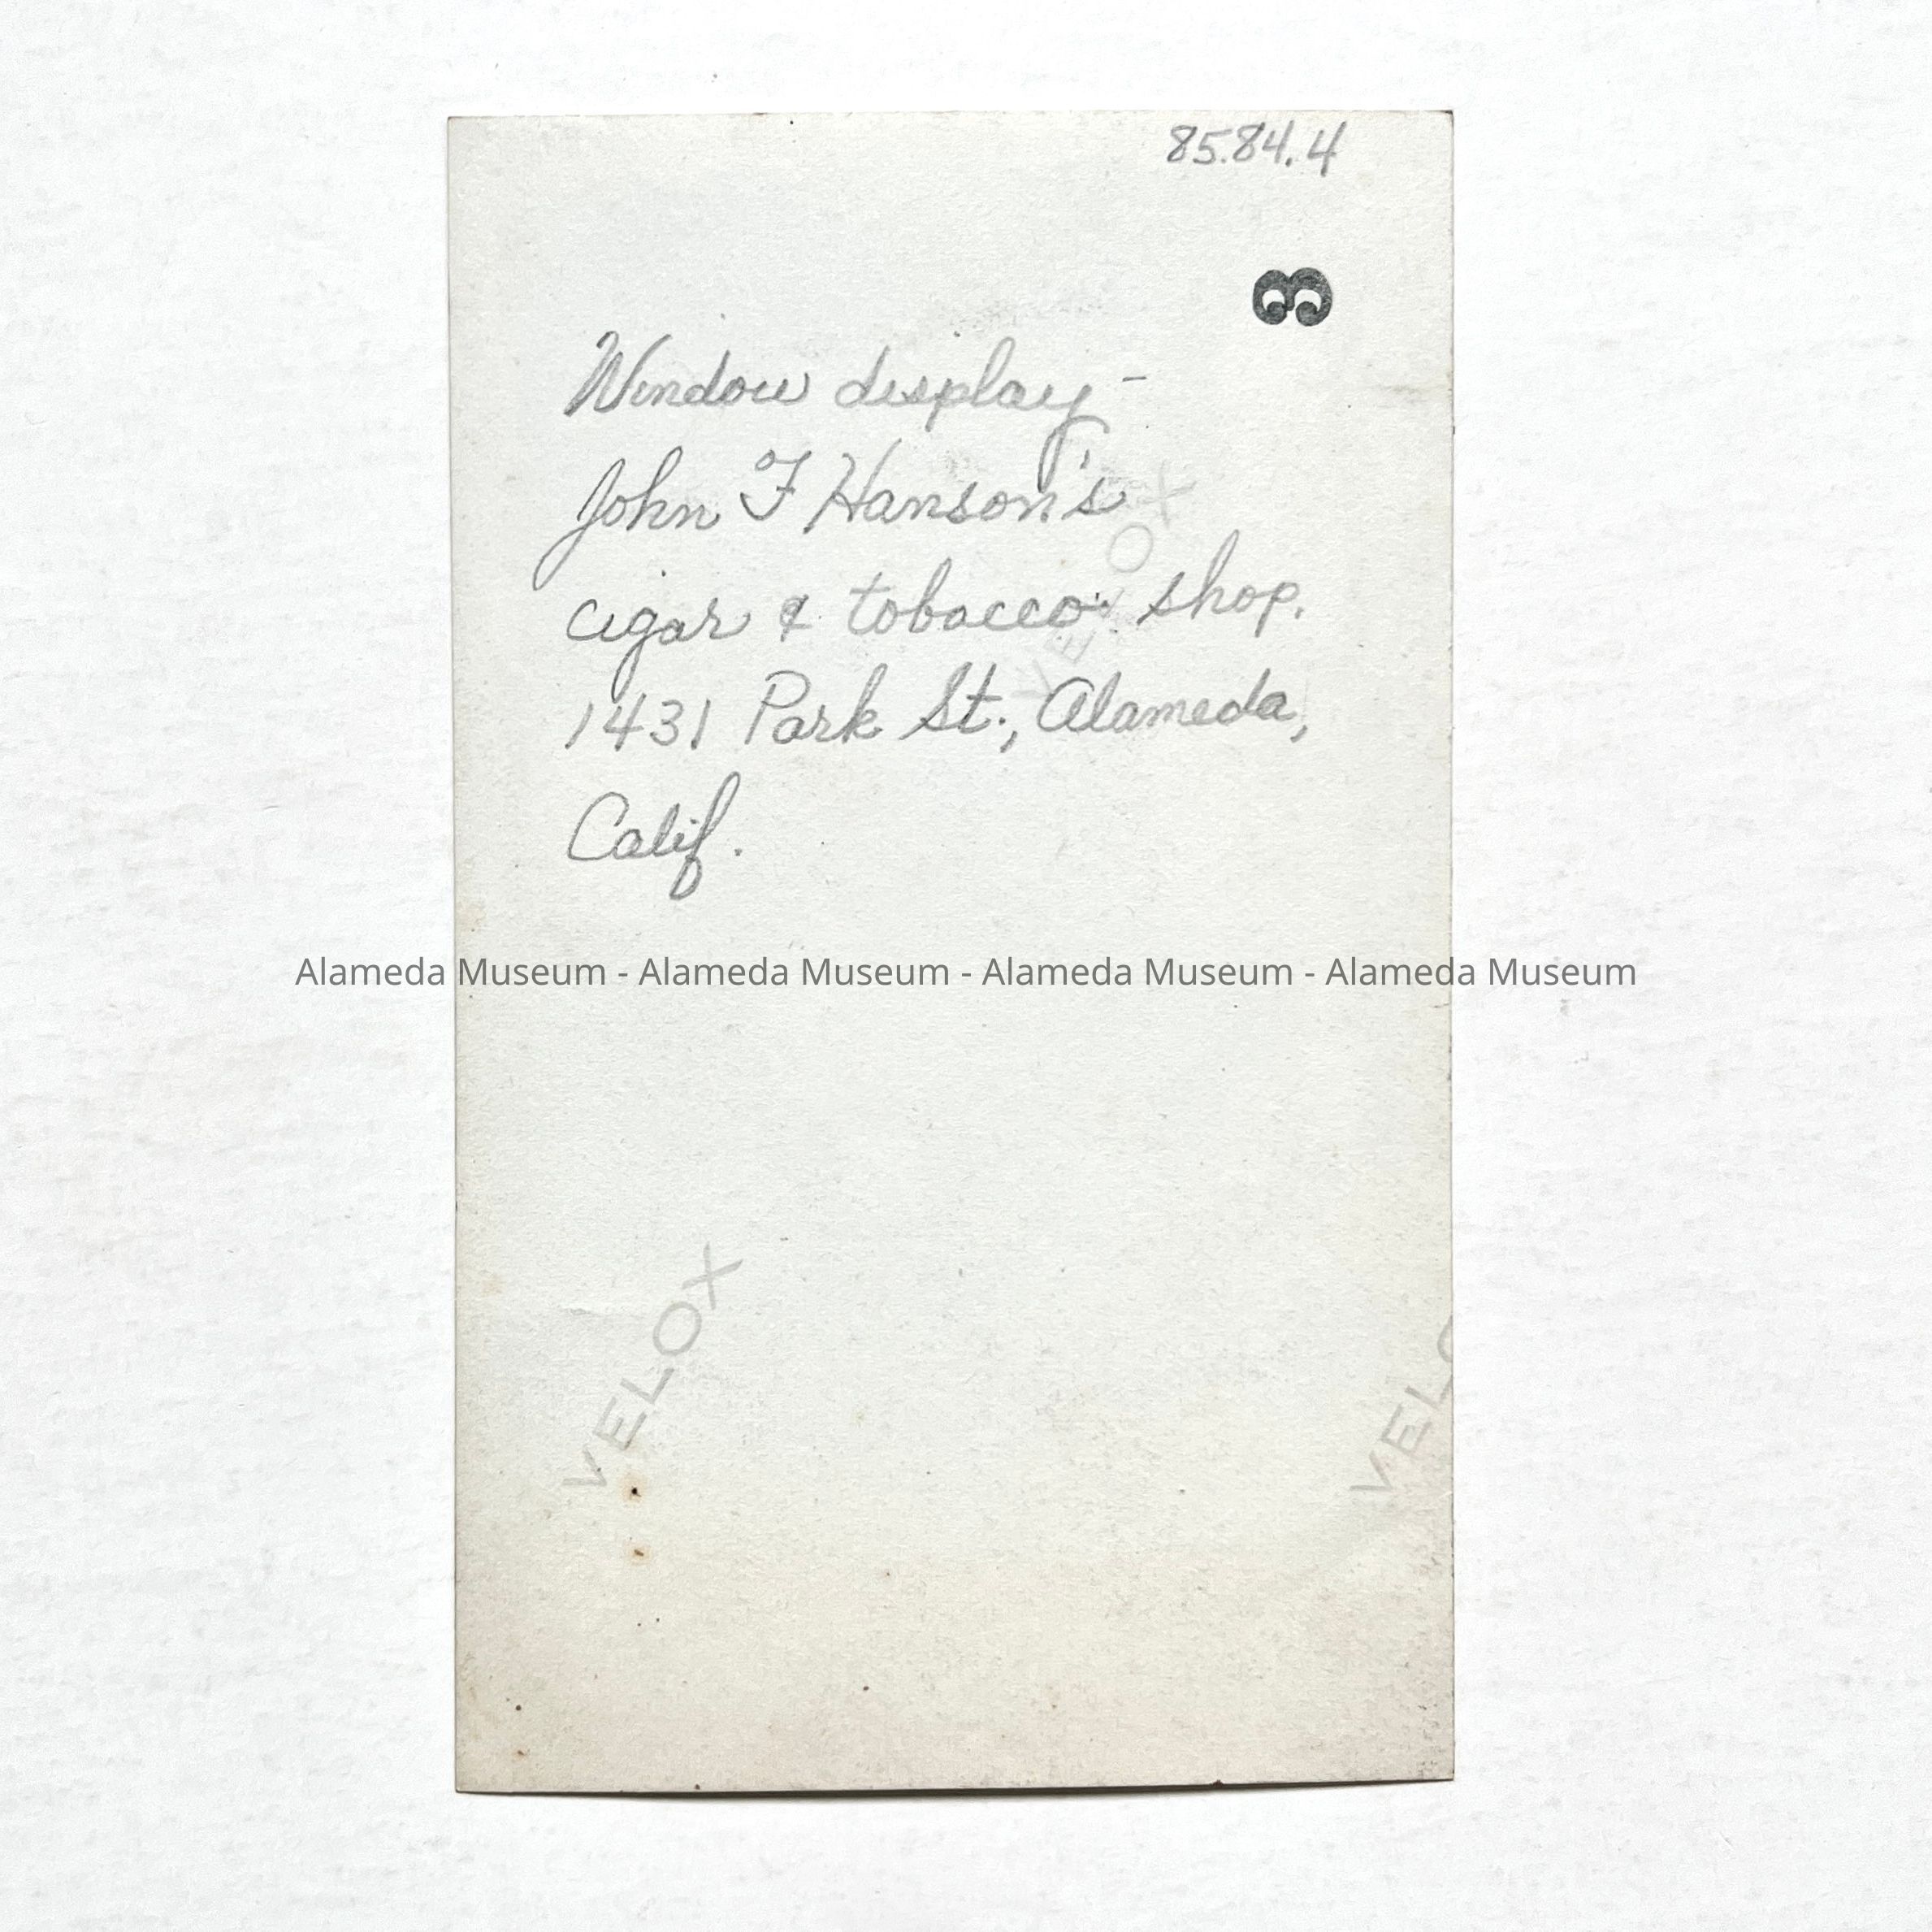 85.84.4
3
Window display -
John F Hanson's
cigar & tobacco shop.
1431 Park St., Alameda,
Calif.
VELOX
Alameda Museum - Alameda Museum - Alameda Museum - Alameda Museum
VELOX
VELO